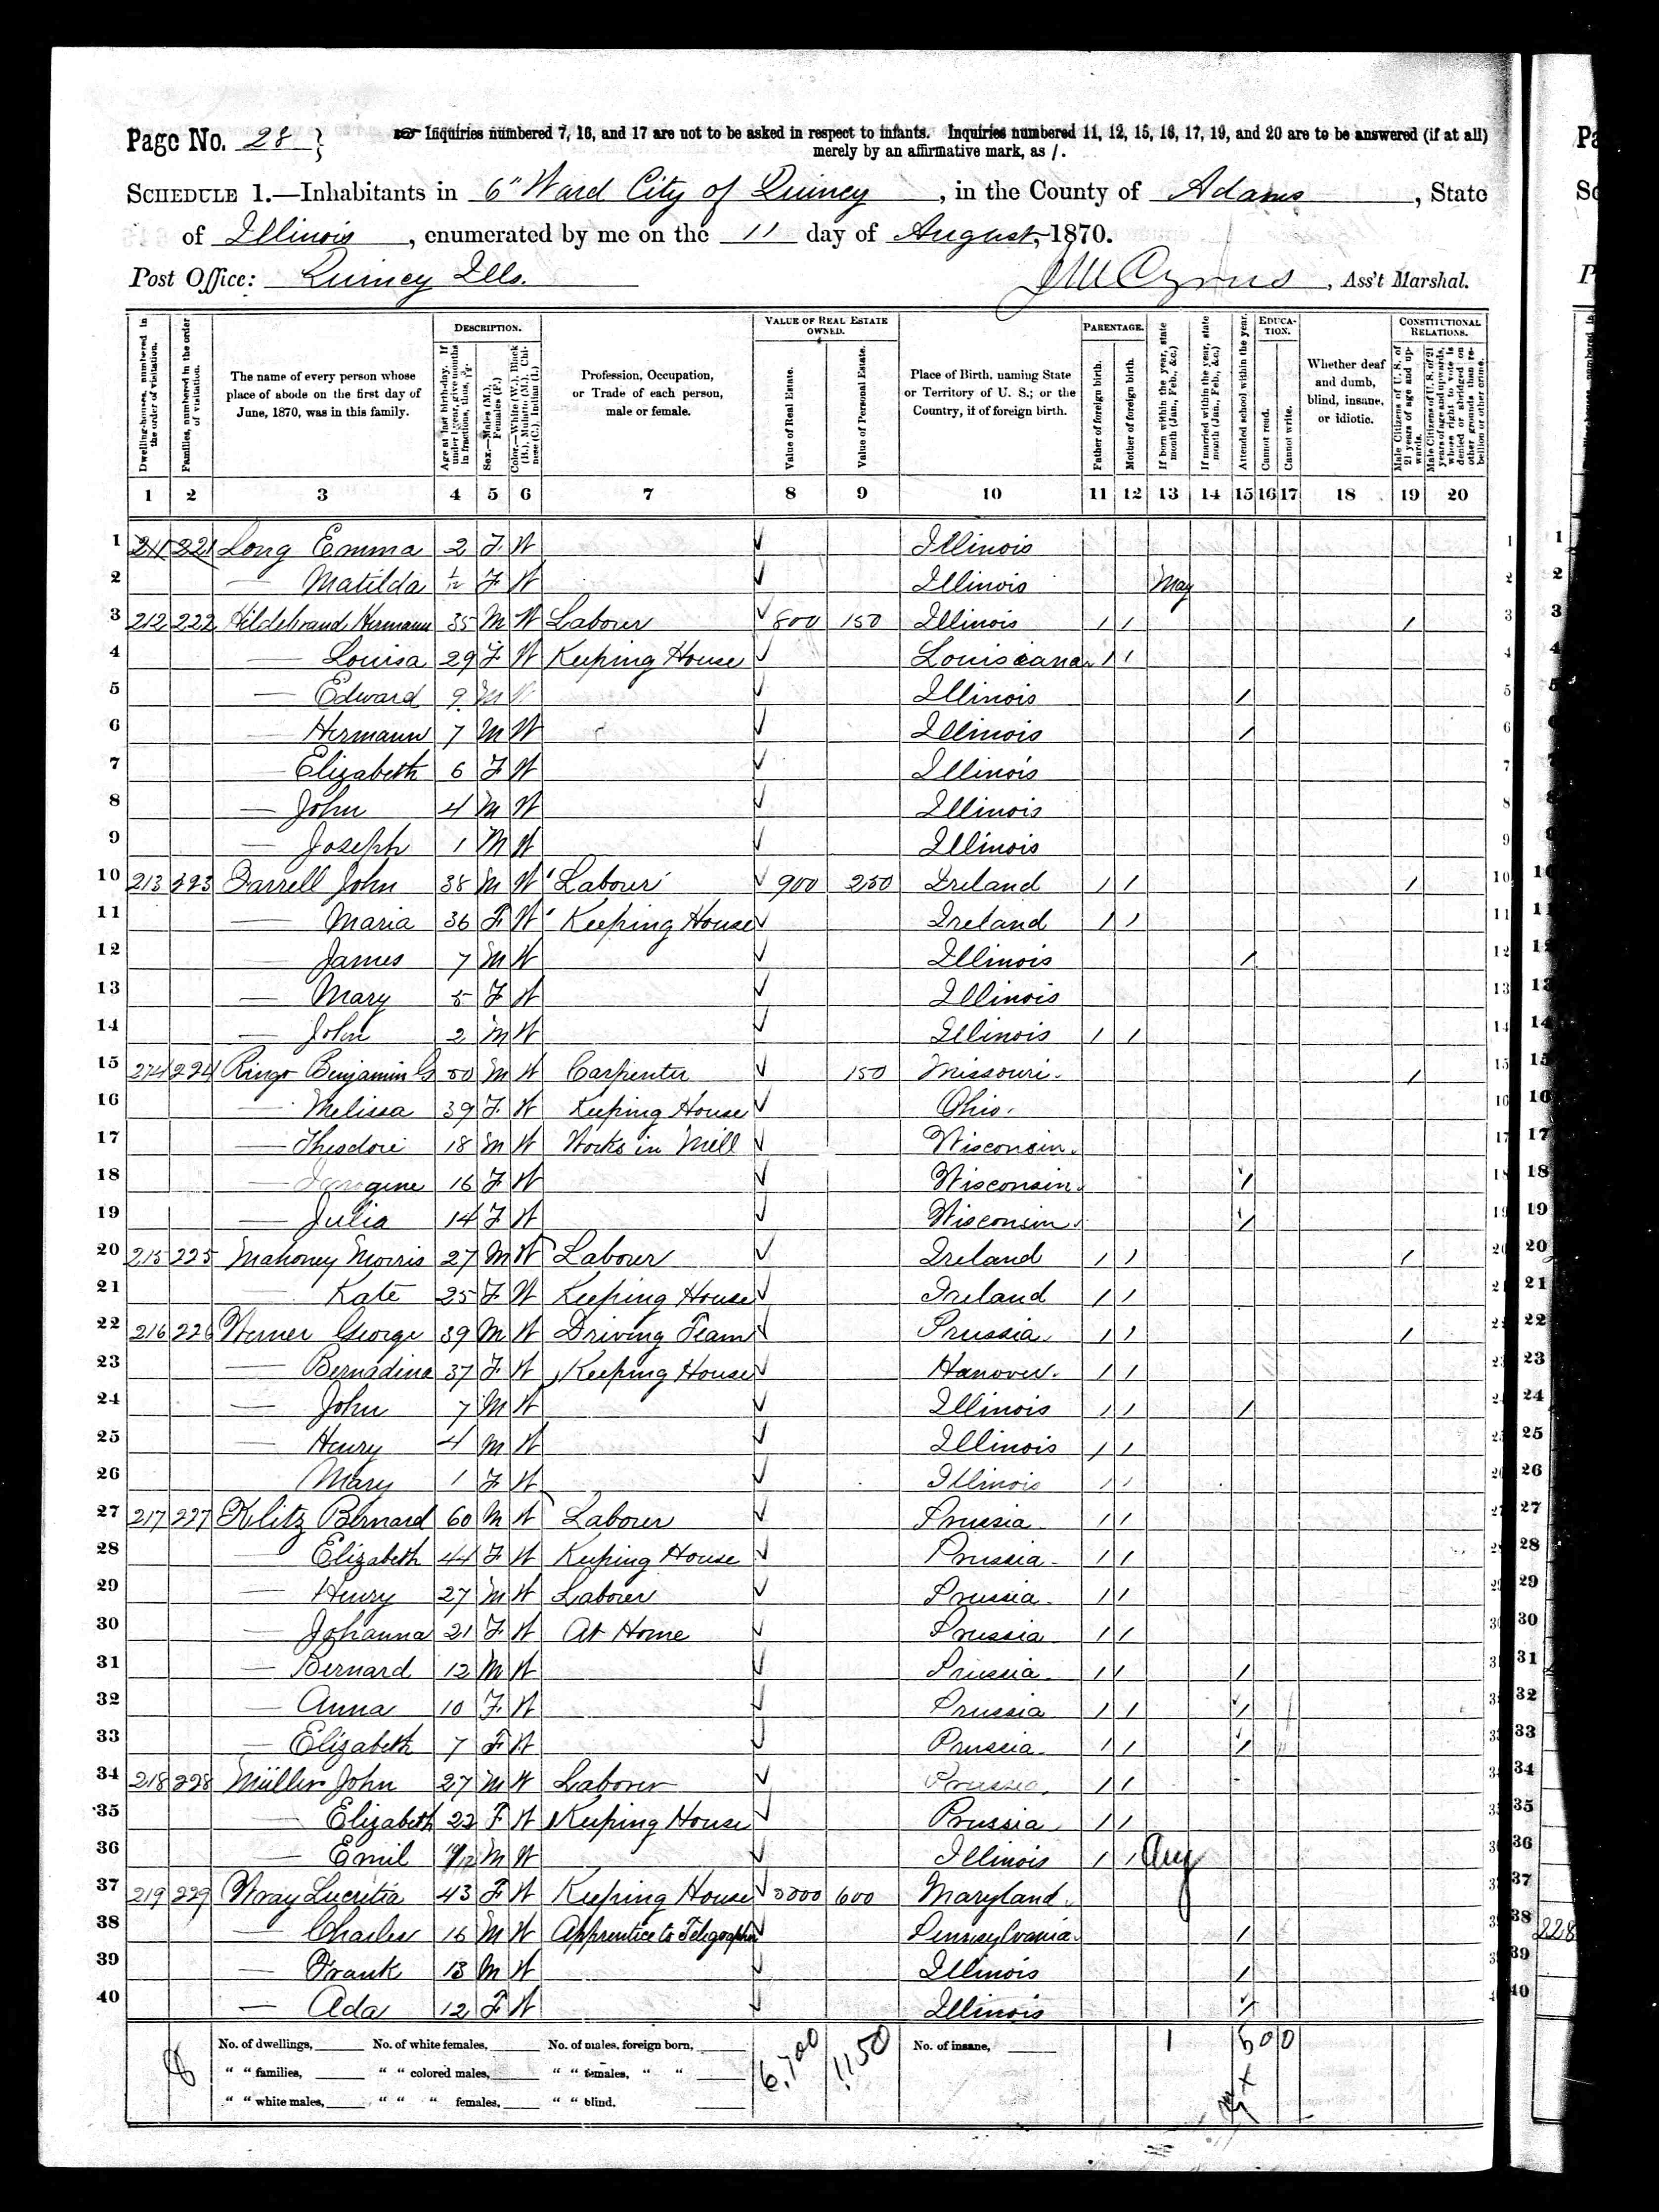 Page No. 28 } ☞ Inquiries numbered 7, 16, and 17 are not to be asked in respect to infants. Inquiries numbered 11, 12, 15, 16, 17, 19, and 20 are to be answered (if at all)
merely by an affirmative mark, as /.
SCHEDULE 1.—Inhabitants in 6" Ward City of Quincy, in the County of Adams, State
of Illinois, enumerated by me on the 11 day of August, 1870.
Post Office: Quincy Ills. J W Cyrus, Ass't Marshal.
DESCRIPTION. VALUE OF REAL ESTATE OWNED. PARENTAGE. EDUCATION. CONSTITUTIONAL RELATIONS.
Dwelling-houses, numbered in the order of visitation.
Families, numbered in the order of visitation.
The name of every person whose place of abode on the first day of June, 1870, was in this family.
Age at last birth-day. If under 1 year, give months in fractions, thus, 3/12.
Sex.—Males (M.), Females (F.)
Color.—White (W.), Black (B.), Mulatto (M.), Chinese (C.), Indian (I.)
Profession, Occupation, or Trade of each person, male or female.
Value of Real Estate.
Value of Personal Estate.
Place of Birth, naming State or Territory of U. S.; or the Country, if of foreign birth.
Father of foreign birth.
Mother of foreign birth.
If born within the year, state month (Jan., Feb., &c.)
If married within the year, state month (Jan., Feb., &c.)
Attended school within the year.
Cannot read.
Cannot write.
Whether deaf and dumb, blind, insane, or idiotic.
Male Citizens of U. S. of 21 years of age and upwards.
Male Citizens of U. S. of 21 years of age and upwards, whose right to vote is denied or abridged on other grounds than rebellion or other crime.
1 2 3 4 5 6 7 8 9 10 11 12 13 14 15 16 17 18 19 20
1 211 221 Long Emma 2 F W ✓ Illinois 1
2 — Matilda 1/12 F W ✓ Illinois May 2
3 212 222 Hildebrand Hermann 35 M W Labourer ✓ 800 150 Illinois / / / 3
4 — Louisa 29 F W Keeping House ✓ Louisiana / / 4
5 — Edward 9 M W ✓ Illinois / 5
6 — Hermann 7 M W ✓ Illinois / 6
7 — Elizabeth 6 F W ✓ Illinois 7
8 — John 4 M W ✓ Illinois 8
9 — Joseph 1 M W ✓ Illinois 9
10 213 223 Farrell John 38 M W Labour ✓ 900 250 Ireland / / / 10
11 — Maria 36 F W Keeping House ✓ Ireland / / 11
12 — James 7 M W ✓ Illinois / 12
13 — Mary 5 F W ✓ Illinois 13
14 — John 2 M W ✓ Illinois / / 14
15 214 224 Ringo Benjamin G 50 M W Carpenter ✓ 150 Missouri / 15
16 — Melissa 39 F W Keeping House ✓ Ohio 16
17 — Theodore 18 M W Works in Mill ✓ Wisconsin 17
18 — 16 F W ✓ Wisconsin / 18
19 — Julia 14 F W ✓ Wisconsin / 19
20 215 225 Mahoney Morris 27 M W Labourer ✓ Ireland / / / 20
21 — Kate 25 F W Keeping House ✓ Ireland / / 21
22 216 226 Werner George 39 M W Driving Team ✓ Prussia / / / 22
23 — Bernadina 37 F W Keeping House ✓ Hanover / / 23
24 — John 7 M W ✓ Illinois / / / 24
25 — Henry 4 M W ✓ Illinois / / 25
26 Mary 1 F W ✓ Illinois / / 26
27 217 227 Klitz Bernard 60 M W Laborer ✓ Prussia / / 27
28 — Elizabeth 44 F W Keeping House ✓ Prussia / / 28
29 — Henry 27 M W Laborer ✓ Prussia / / 29
30 — Johanna 21 F W At Home ✓ Prussia / / 30
31 — Bernard 12 M W ✓ Prussia / / / 31
32 — Anna 10 F W ✓ Prussia / / / 32
33 — Elizabeth 7 F W ✓ Prussia / / / 33
34 218 228 Müller John 27 M W Laborer ✓ Prussia / / 34
35 — Elizabeth 22 F W Keeping House ✓ Prussia / / 35
36 — Emil M W ✓ Illinois / / Aug 36
37 219 229 Wray Lucretia 43 F W Keeping House ✓ 600 Maryland 37
38 — Charles 16 M W Apprentice to Telegrapher ✓ Pennsylvania / 38
39 — Frank 13 M W ✓ Illinois / 39
40 — Ada 12 F W ✓ Illinois / 40
No. of dwellings, No. of white females, No. of males, foreign born, 6,700 1150 No. of insane, 1 5 0 0
" " families, " " colored males, " " females, " "
" " white males, " " " females, " " blind.